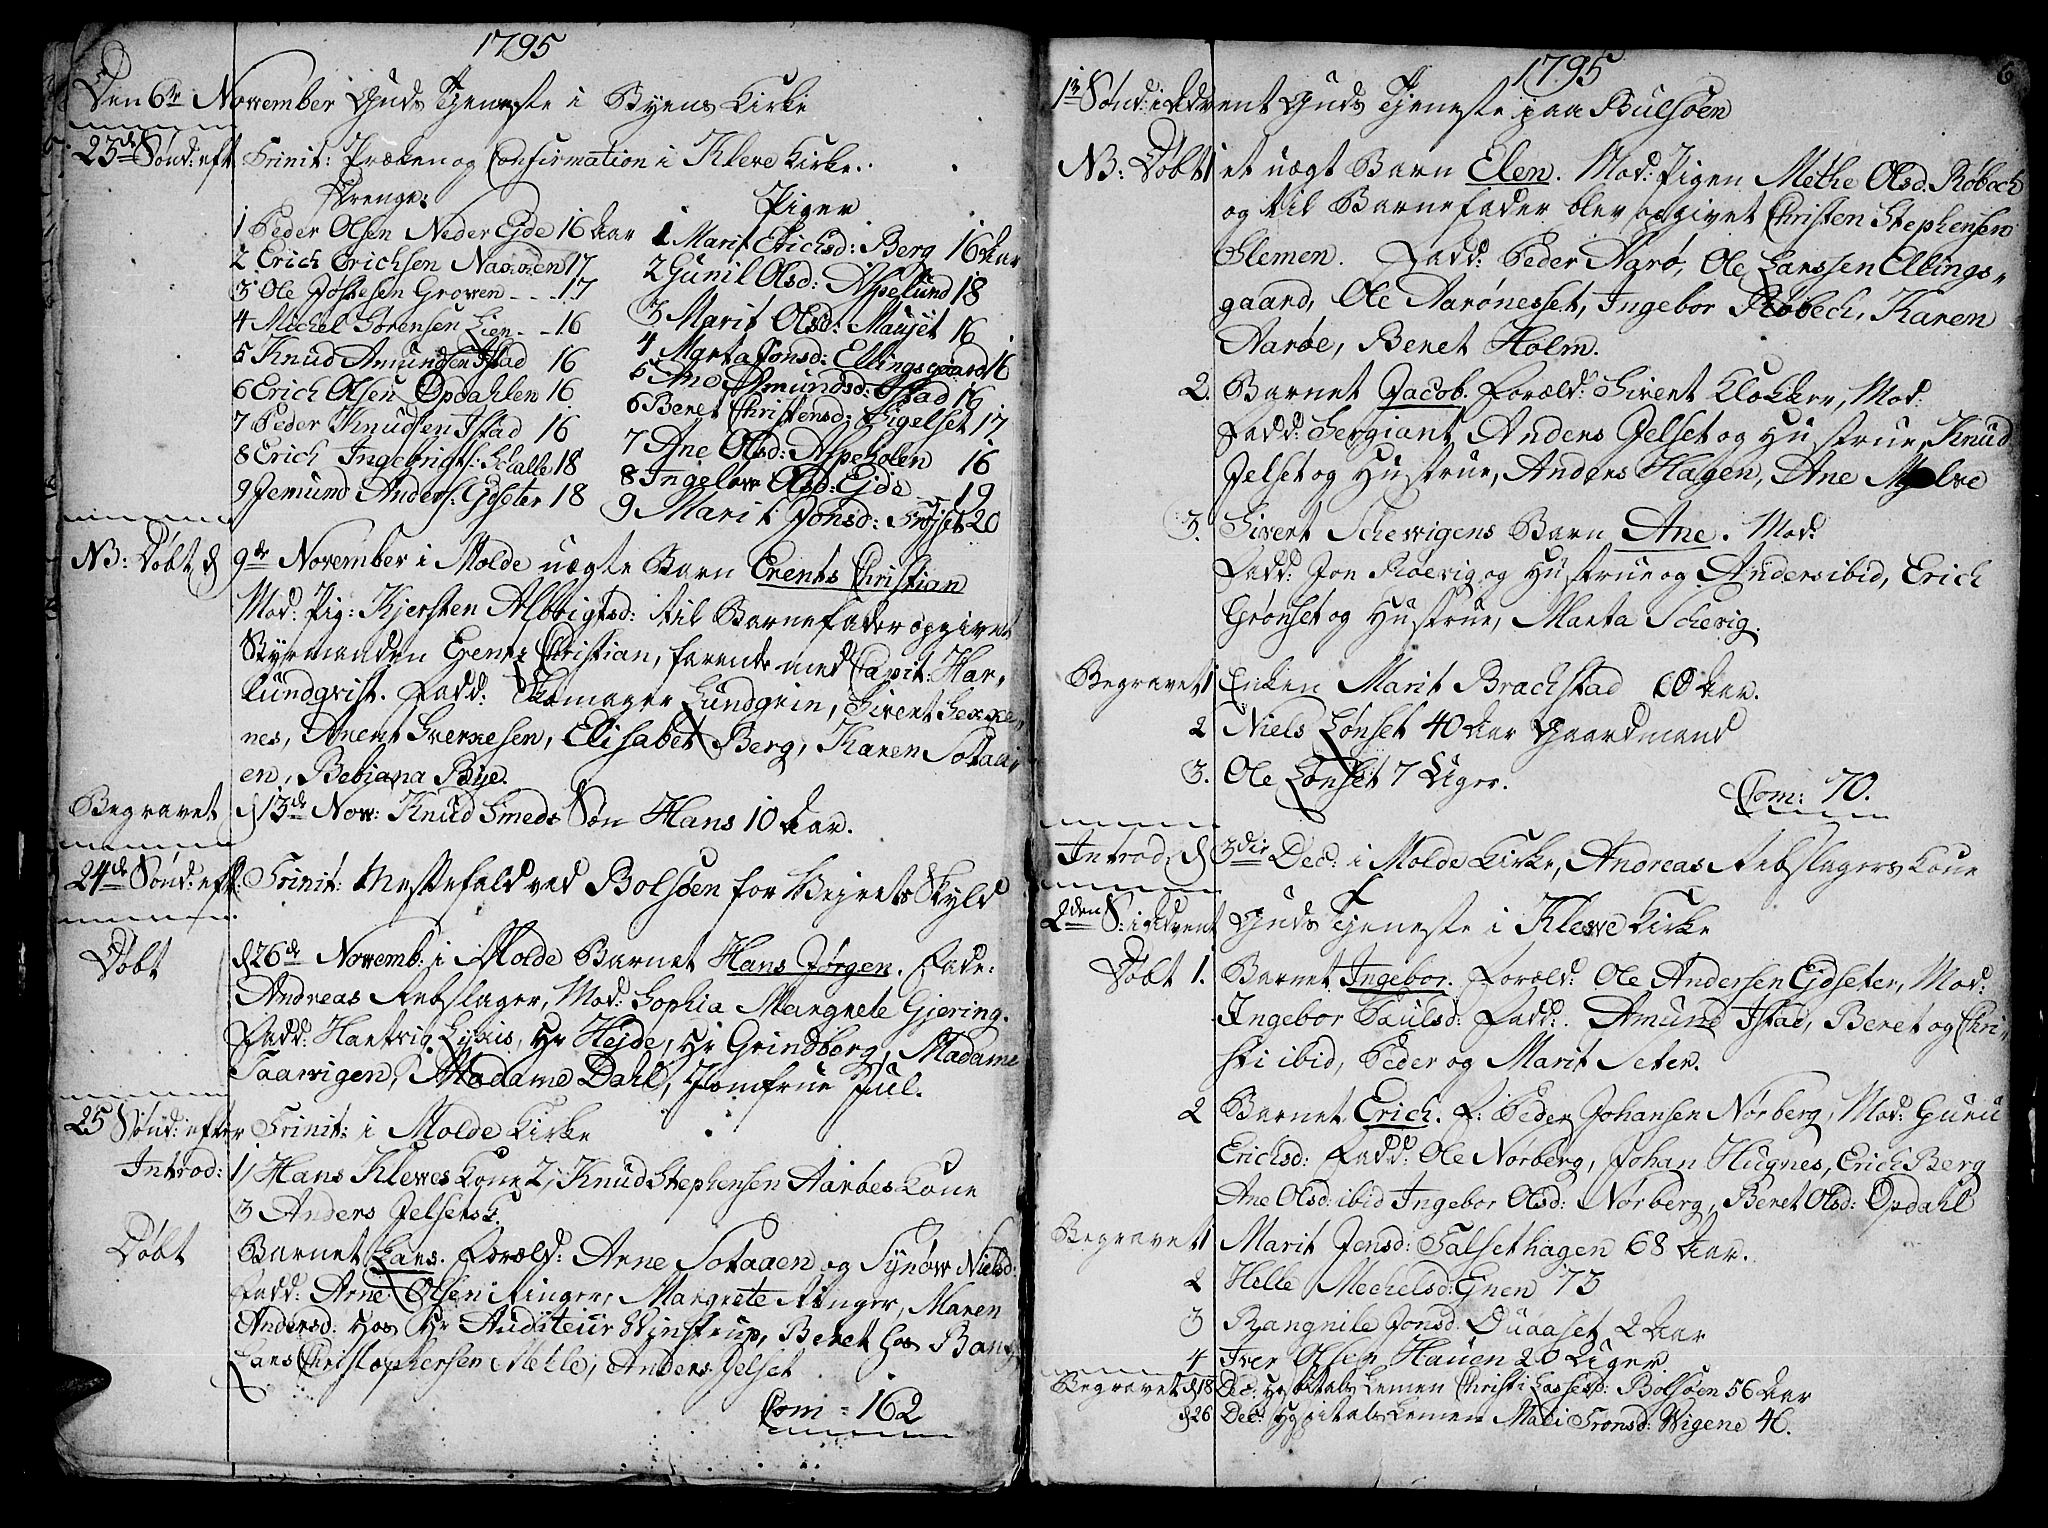 1795
Den 6te November Guds Tjeneste i Byens Kirke
23de Sønd: eft. Trinit: Præken og Confirmation i Kleve Kirke.
Drenge:
1 Peder Olsen Neder Ejde 16 Aar
2 Erich Erichsen 17
3 Ole Jostesen Growen 17
4 Michel Sørensen Lien 16
5 Knud Amundsen Istad 16
6 Erich Olsen Opdahlen 16
7 Peder Knudsen Istad 16
8 Erich Ingebrigts: Schalle 18
9 Jemund Anders: Ejdseter 18
Piger
1 Marit Erichsd: Berg 16 Aar
2 Gunil Olsd: Aspelund 18
3 Marit Olsd: Mausset 16
4 Marta Jonsd: Ellingsgaard 16
5 Ane Amundsd: Istad 16
6 Beret Christensd: Sigelset 17
7 Ane Olsd: Aspeholen 16
8 Ingebor Olsd: Ejde 19
9 Marit Jonsd: Frøjset 20
NB: Døbt d 9de November i Molde uægte Barn Erents Christian
Mod: Pig: Kjersten Albrigtsd: til Barnefader opgivet
Styrmanden Christian, farende med Capit: Har-
lundqvist. Fadd: Skomager Lundgrin, Sivert
nes, Anent Sverresen, Elisabet Berg, Karen Sotaa-
en, Bebiana Bye.
Begravet d 13de Nov: Knud Smeds Søn Hans 10 Aar.
24de Sønd: eft. Trinit: Messefald ved Bolsøen for Vejrets Skyld
Døbt d 26de Novemb: i Molde Barnet Hans Jørgen. Fade:
Andreas Rebslager, Mod: Sophia Margrete Gjering.
Fadd: Hartvig Lykis, Hr Hejde, Hr Grindborg, Madame
Taarvigen, Madame Dahl, Jomfrue Juul.
25 Sønd: efter Trinit: i Molde Kirke
Introd: 1, Hans Klewes Kone 2, Knud Stephensen Aarøes Kone
3 Anders Jelsets K.
Døbt Barnet Lars. Foræld: Arne Sotaaen og Synøw Nielsd:
Fadd: Arne Olsen Ringer, Margrete Ringer, Maren
Andersd: hos Hr Auditeur Winstrup, Beret hos Bang,
Lars Christophersen Mehle, Anders Jelset
Com = 162
1795
6
1ste Sønd: i Advent Guds Tjeneste paa Bulsøen
NB: Døbt 1 et uægt Barn Elen. Mod: Pigen Methe Olsd. Røbech
og til Barnefader blev opgivet Christen Stephensen
Slemen. Fadd: Peder Aarø, Ole Larssen Ellings-
gaard, Ole Aarønesset, Ingebor Røbech, Karen
Aarøe, Beret Holm.
2. Barnet Jacob. Foræld: Sivert Klokker, Mod:
Fadd: Sergiant Anders Jelset og Hustrue, Knud
Jelset og Hustrue, Anders Hagen, Ane Mjelve
3. Sivert Schewigens Barn Ane. Mod:
Fadd: Jon Røevig og Hustrue og Anders ibid, Erich
Grønset og Hustrue, Marta Schevig.
Begravet 1 Enken Marit Brachstad 60 Aar.
2 Niels Lønset 40 Aar Gaardmand
3. Ole Lønset 7 Uger.
Com: 70.
Introd. d 3die Dec: i Molde Kirke, Andreas Rebslagers Kone
2den S: i Advent Guds Tjeneste i Klewe Kirke
Døbt 1. Barnet Ingebor. Foræld: Ole Andersen Ejdseter, Mod:
Ingebor Paulsd: Fadd: Amund Istad, Beret og Chri-
sti ibid, Peder og Marit Seter.
2 Barnet Erich. F: Peder Johansen Nørberg, Mod: Guru
Erichsd: Fadd: Ole Nørberg, Johan Hugnes, Erich Berg
Ane Olsd: ibid Ingebor Olsd: Nørberg, Beret Olsd: Opdahl
Begravet 1 Marit Jensd: Talsethagen 68 Aar.
2 Helle Mechelsd: Enen 73
3 Rangnile Jonsd: Duaaset 2 Aar
4 Iver Olsen Hauen 20 Uger
Begravet d 18 Dec: Hospitals Lemen Christi Lassesd: Bolsøen 56 Aar
d 26 Dec: Hospitals Lemen Mari Tronsd: Wigene 46.